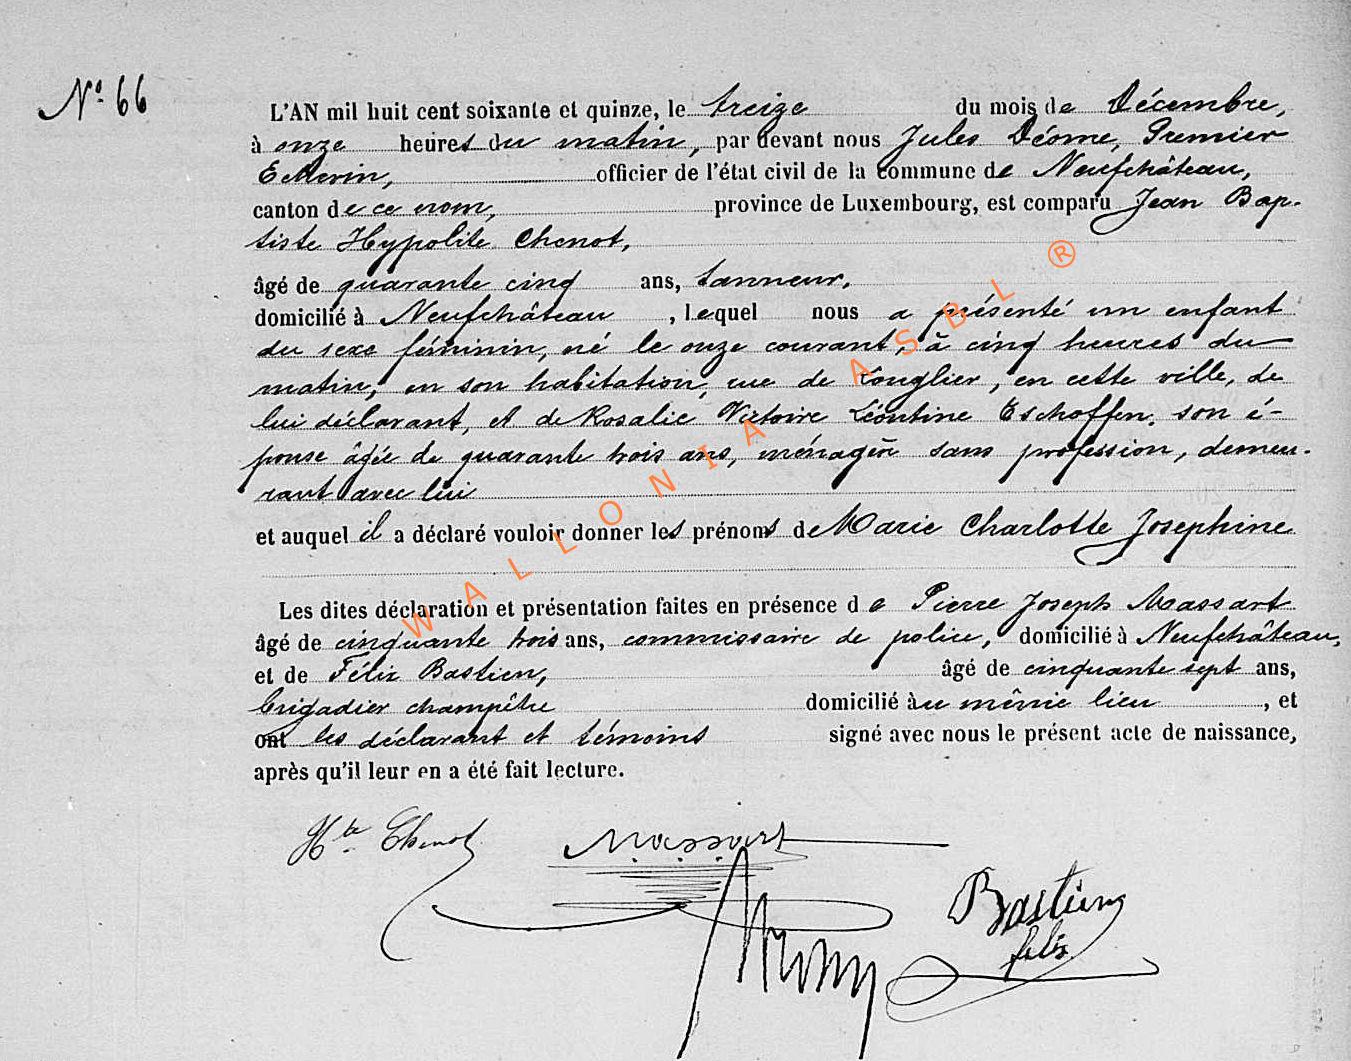 N° 66
L'AN mil huit cent soixante et quinze, le treize du mois de Décembre,
à onze heures du matin, par devant nous Jules Déome, Premier
Echevin, officier de l'état civil de la commune de Neufchâteau,
canton de ce nom, province de Luxembourg, est comparu Jean Bap-
tiste Hypolite Chenot,
âgé de quarante cinq ans, tanneur,
domicilié à Neufchâteau, lequel nous a présenté un enfant
du sexe féminin, né le onze courant, à cinq heures du
matin, en son habitation, rue de Longlier, en cette ville, de
lui déclarant, et de Rosalie Victoire Léontine Eschoffen, son é-
pouse âgée de quarante trois ans, ménagère sans profession, demeu-
rant avec lui
et auquel il a déclaré vouloir donner les prénoms de Marie Charlotte Josephine
Les dites déclaration et présentation faites en présence de Pierre Joseph Massart
âgé de cinquante trois ans, commissaire de police, domicilié à Neufchâteau,
et de Félix Bastien, âgé de cinquante sept ans,
brigadier champêtre domicilié au même lieu, et
ont les déclarant et témoins signé avec nous le présent acte de naissance,
après qu'il leur en a été fait lecture.
Hte Chenot Massart
Bastien
felix
WALLONIA ASBL ®